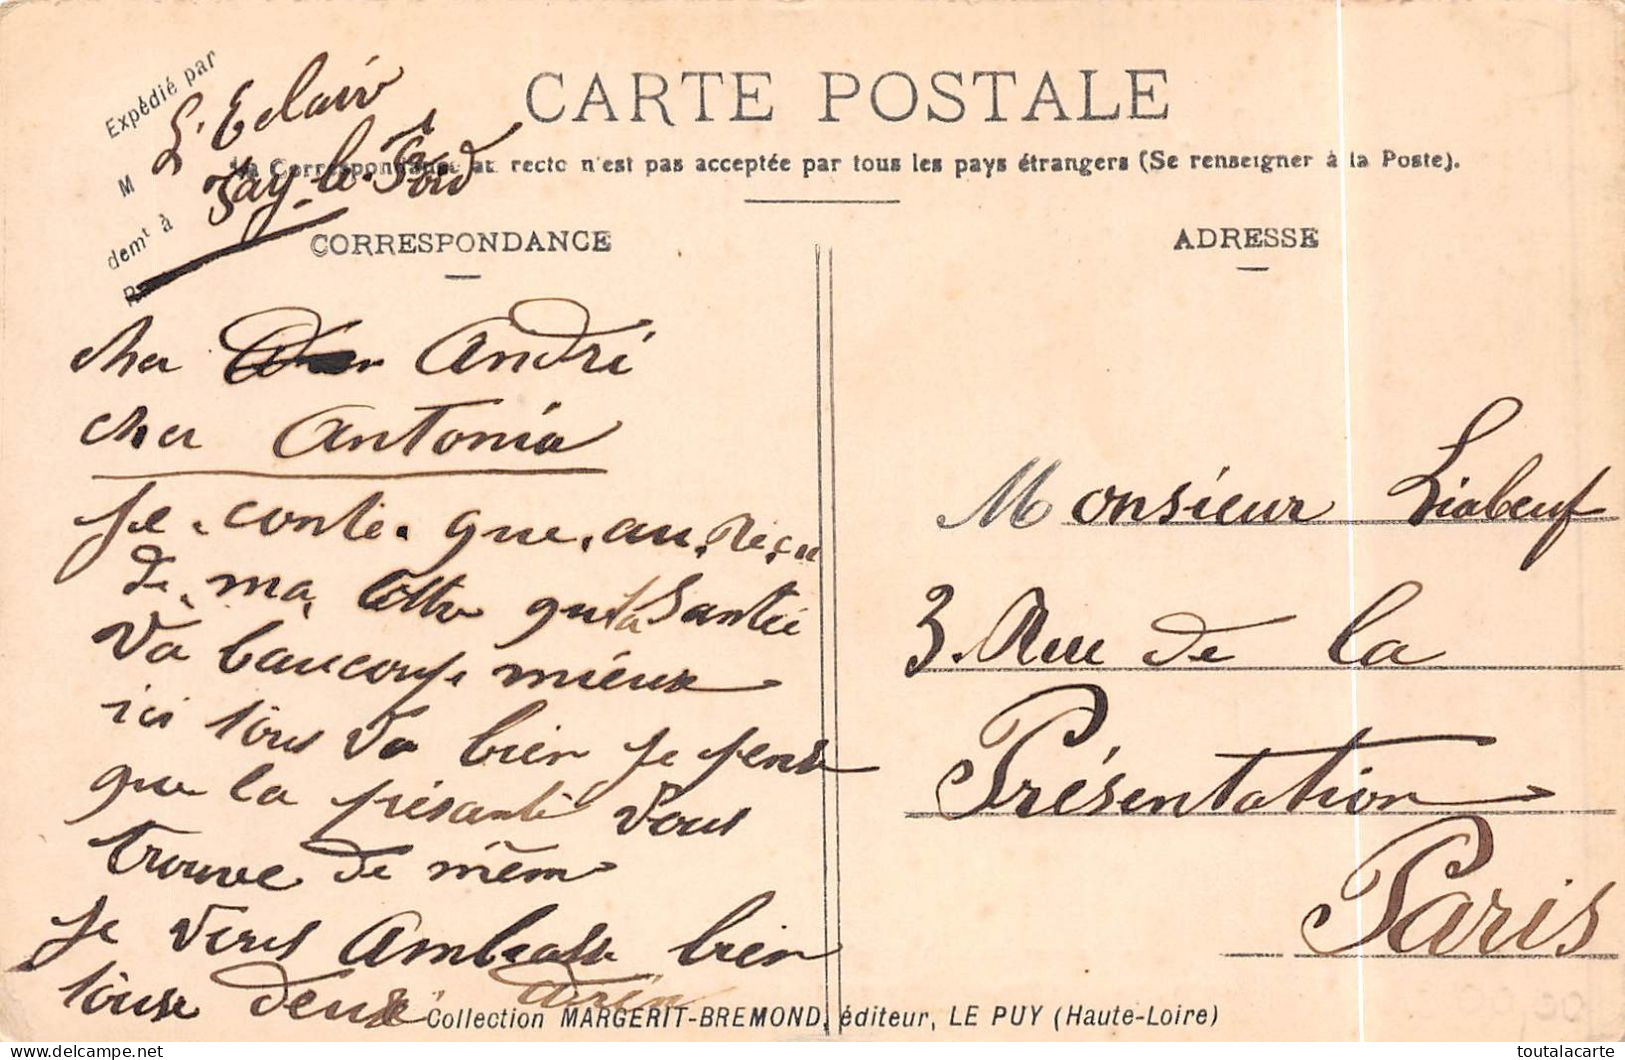 Expédié par
M L'Eclair
demt à Fay-le-Froid
CARTE POSTALE
La Correspondance au recto n'est pas acceptée par tous les pays étrangers (Se renseigner à la Poste).
CORRESPONDANCE
cher André
cher Antonia
je. conte. que. au. reçu
de. ma. lettre que ta Santée
va baucoup. mieux
ici tous va bien je pense
que la présante vous
trouve de mêm
je vous Ambrasse bien
touse deux
ADRESSE
Monsieur Liabeuf
3. Rue de la
Présentation
Paris
Collection MARGERIT-BREMOND, éditeur, LE PUY (Haute-Loire)
toutalacarte